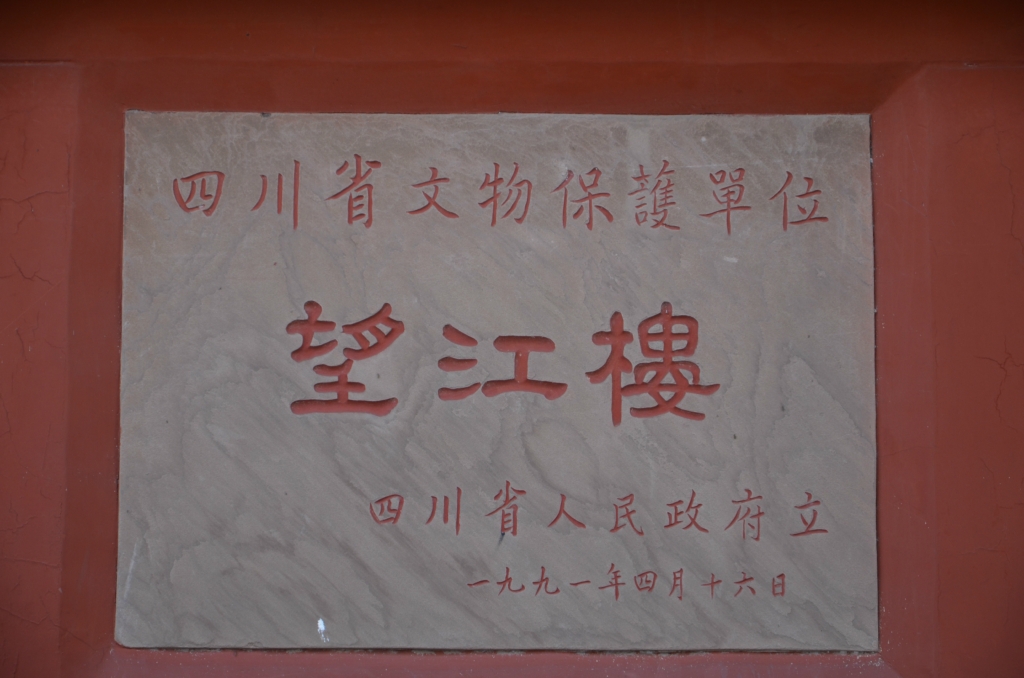 四川省文物保護單位
望江樓
四川省人民政府立
一九九一年四月十六日